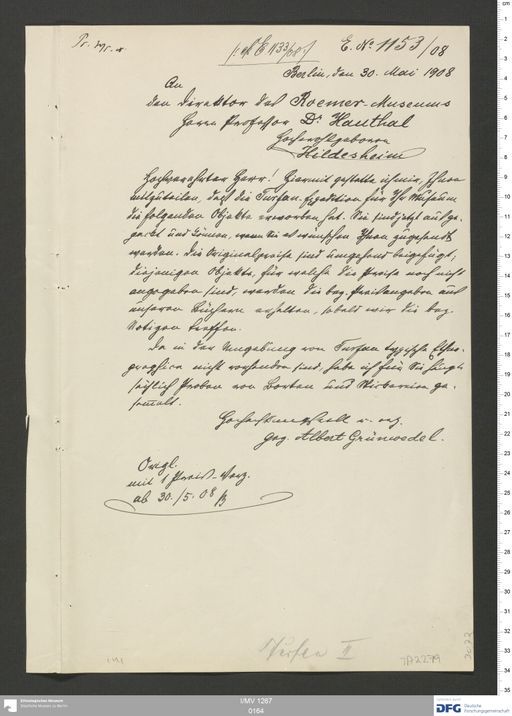 E. No 1153/08
Berlin, den 30. Mai 1908
An
den Direktor des Roemer-Museums
Herrn Professor Dr. Hauthal
Hochwohlgeboren
Hildesheim
Hochverehrter Herr! Hiermit gestatte ich mir, Ihnen
mitzuteilen, dass die Turfan-Expedition für Ihr Museum
die folgenden Objekte erworben hat. Sie sind jetzt ausge-
packt und können, wenn Sie es wünschen Ihnen zugesandt
werden. Die Originalpreise sind umgehend beigefügt,
diejenigen Objekte, für welche die Preise noch nicht
angegeben sind, werden die bez. Preisangaben aus
unseren Büchern erhalten, sobald wir die bez.
Notizen treffen.
Da in der Umgebung von Turfan typische Ethno-
graphica nicht vorhanden sind, habe ich für Sie haupt-
sächlich Proben von Borten und Stickereien ge-
sammelt.
Hochachtungsvoll
gez. Albert Grünwedel.
Origl.
mit 1 Preis-Verz.
ab 30./5. 08
Turfan II
I/MV 1267
0164
Ethnologisches Museum
Staatliche Museen zu Berlin
DFG Deutsche
Forschungsgemeinschaft